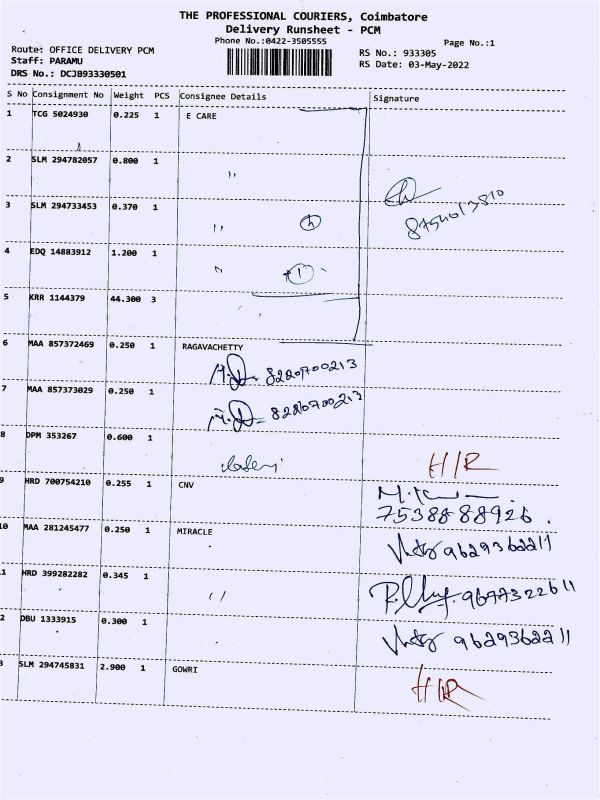 THE PROFESSIONAL COURIERS, Coimbatore
Delivery Runsheet - PCM
Phone No.:0422-3505555
Page No.:1
Route: OFFICE DELIVERY PCM
Staff: PARAMU
DRS No.: DCJB93330501
RS No.: 933305
RS Date: 03-May-2022
S No Consignment No Weight PCS Consignee Details Signature
1 TCG 5024930 0.225 1 E CARE
2 SLM 294782057 0.800 1 "
3 SLM 294733453 0.370 1 "
8754013810
4 EDQ 14883912 1.200 1 "
5 KRR 1144379 44.300 3
6 MAA 857372469 0.250 1 RAGAVACHETTY
8220700213
7 MAA 857373029 0.250 1
8220700213
8 DPM 353267 0.600 1 H/R
9 HRD 700754210 0.255 1 CNV
7538888926.
10 MAA 281245477 0.250 1 MIRACLE
9629362211
1 HRD 399282282 0.345 1 "
9677322611
2 DBU 1333915 0.300 1
9629362211
3 SLM 294745831 2.900 1 GOWRI H/R